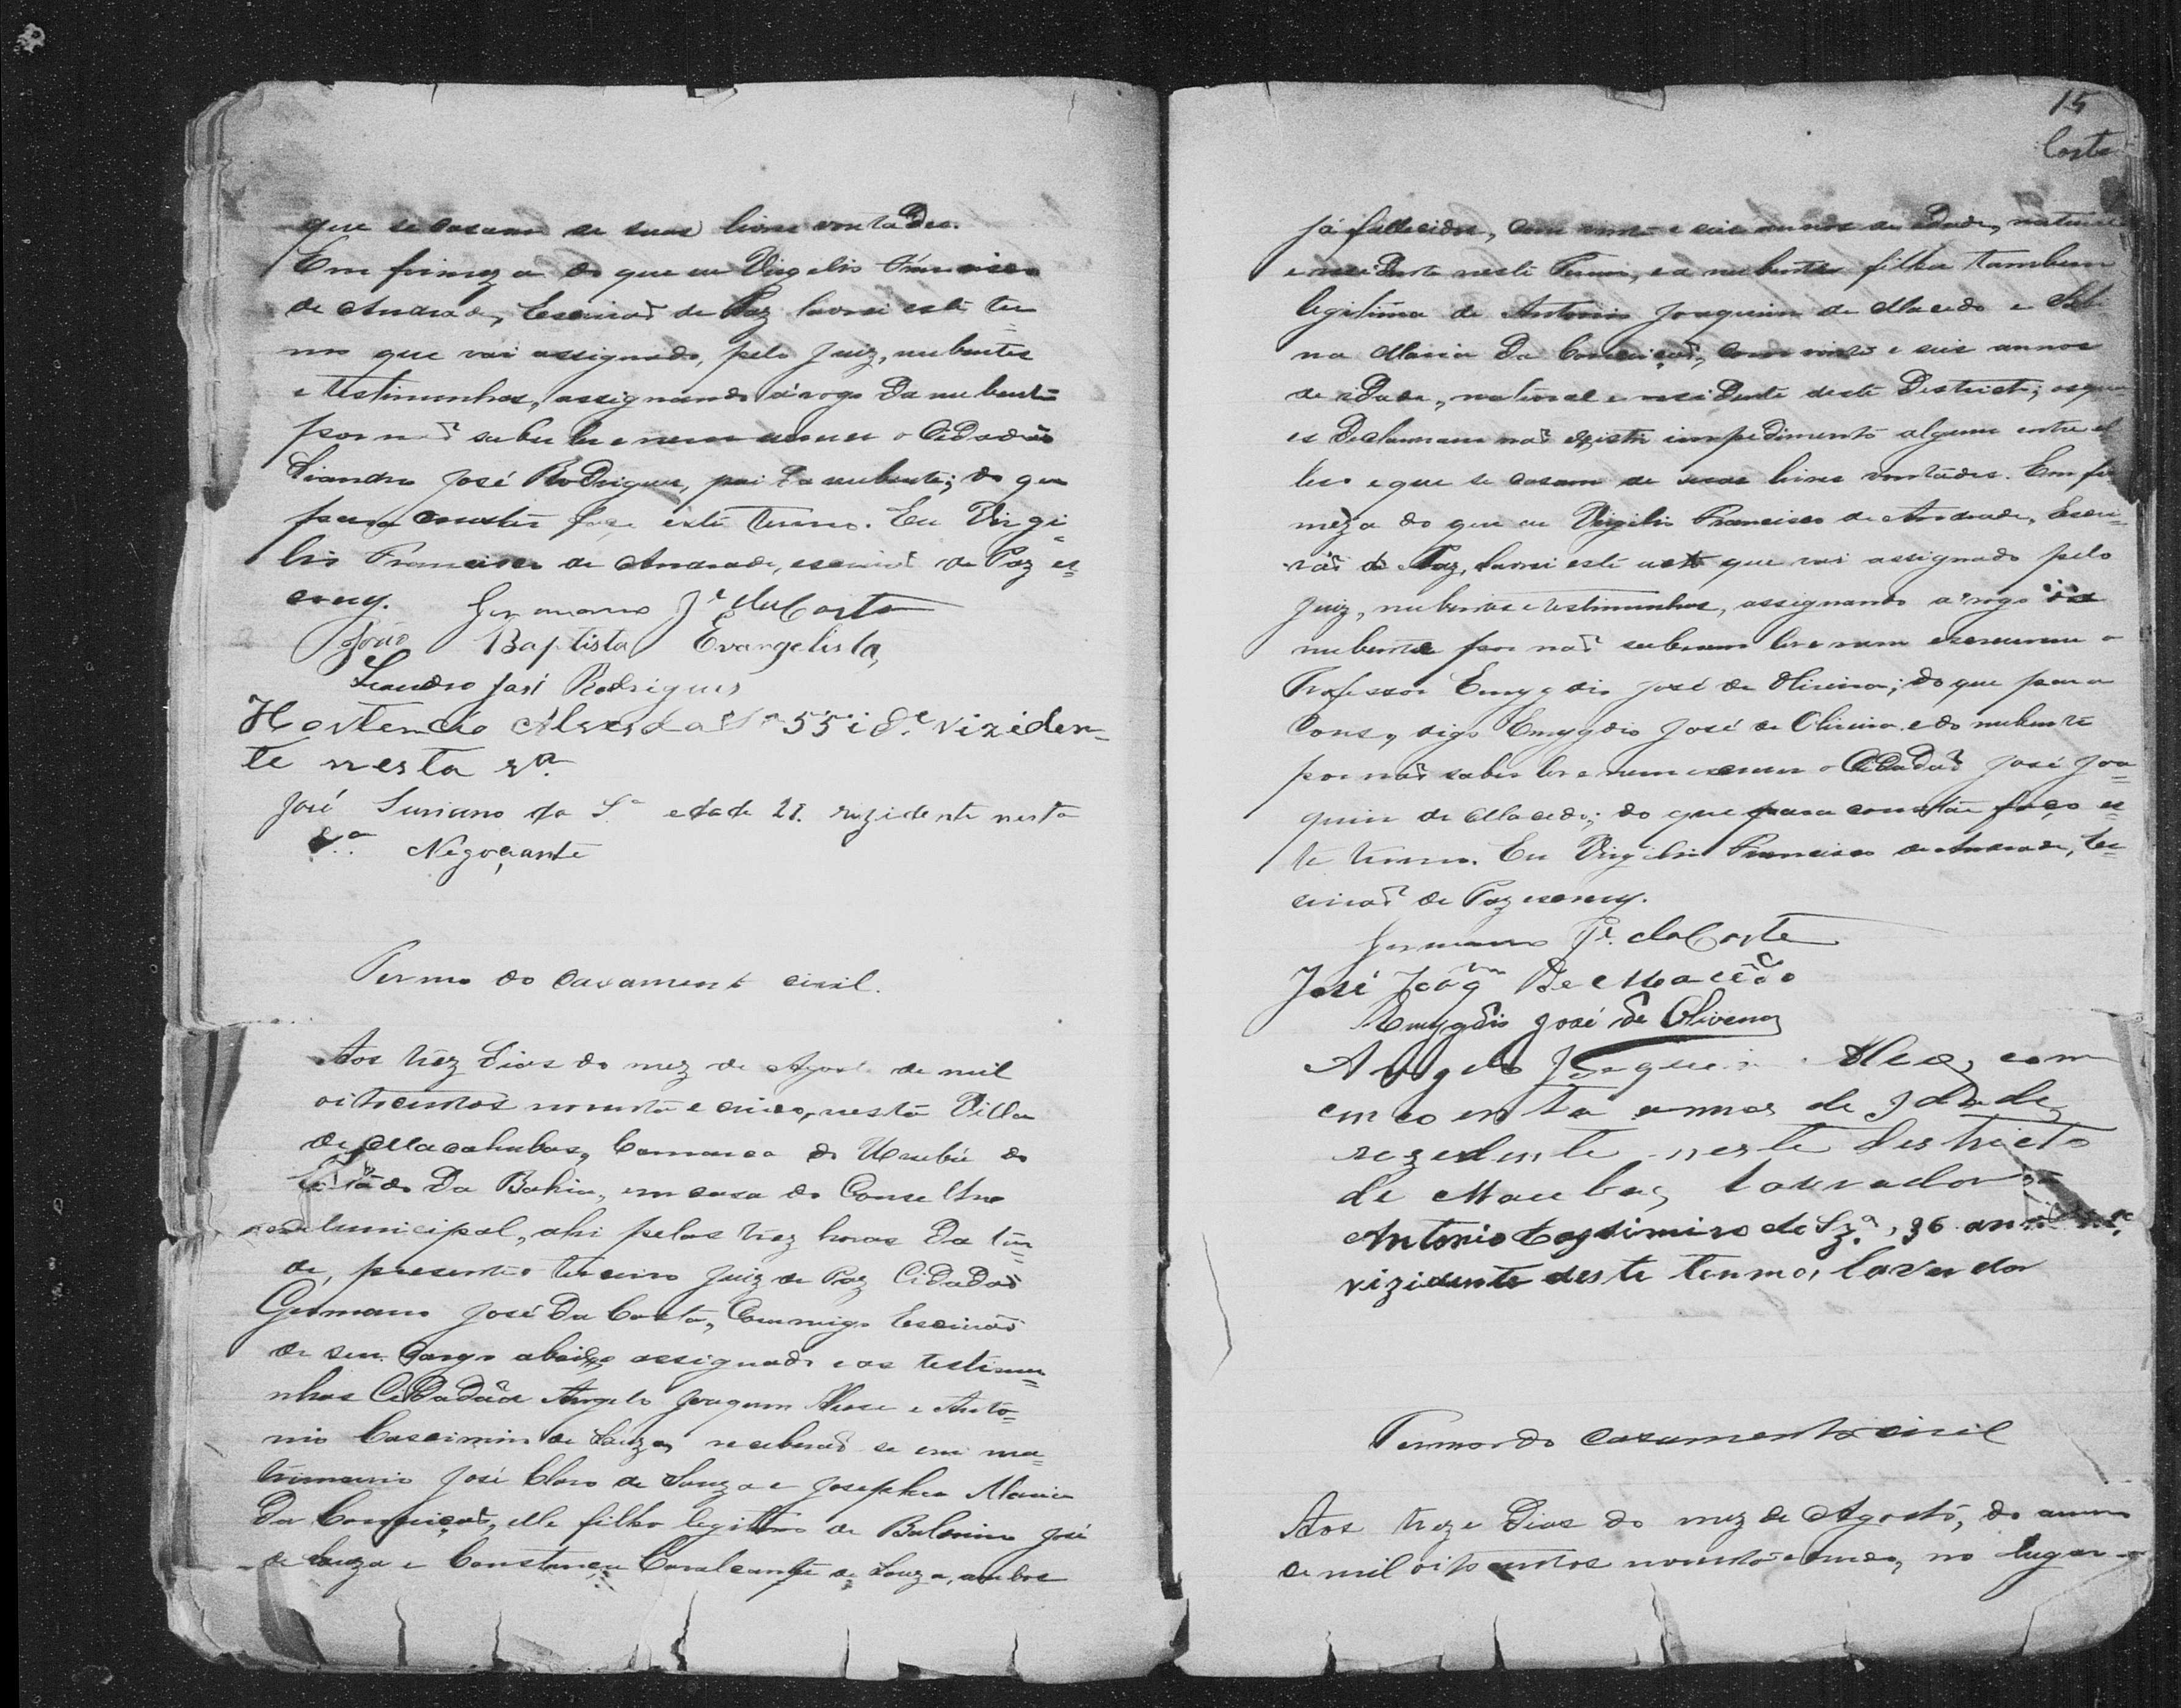 que se casam de suas livres vontades.
Em firmeza do que eu Virgilio Francisco
de Andrade, Escrivaõ de Paz lavrei este ter=
mo que vai assignado, pelo Juiz, nubentes
e testimunhas, assignando á rogo da nubente
por naõ saber ler e nem escrever o Cidadaõ
Liandro José Rodrigues, pai da nubente; do que
para constar faço este termo. Eu Virgi=
lio Francisco de Andrade, escrivaõ de Paz es=
crevy. Germano Jé. da Costa
João Baptista Evangelista,
Leandro José Rodrigues
Hortencio Alves da Sª 55 i d.e rizeden=
te nesta
José da S.ª edade 21. rezidente nesta
Negociante
Termo do casamento civil.
Aos trez dias do mez de Agosto de mil
oitocentos noventa e cinco, nesta Villa
de Macahubas, Comarca do Urubú do
Estado da Bahia, em casa do Conselho
Municipal, ahi pelas trez horas da tar=
de, presente o terceiro Juiz de Paz Cidadaõ
Germano José da Costa, Commigo Escrivaõ
de seu cargo abaixo assignado e as testimu=
nhas Cidadãos Angelo Joaquim e Anto=
nio Cascimiro de Souza, receberaõ se em ma=
trimonio José Claro de Souza e Josepha Maria
da Conceiçaõ, elle filho legitimo de José
de Souza e Constança Cavalcante de Souza, ambos
15
Costa
já fallecidos, com vinte e seis annos de idade, natural
e residente neste Termo, e a nubente filha tambem
legitima de Antonio Joaquim de Macedo e
na Maria da Conceiçaõ, com vinte e seis annos
de idade, natural e residente deste Districto; os qua
es declararam naõ existir impedimento algum entre el
les e que se casam de suas livres vontades. Em fir
meza do que eu Virgilio Francisco de Andrade, Escri=
vaõ de Paz, lavrei este acto que vai assignado pelo
Juiz, nubentes e testimunhas, assignando a rogo dos
nubentes por naõ saberem ler e nem escreverem o
Professor Emygdio José de Oliveira; do que para
Cons, digo Emygdio José de Oliveira e do nubente
por naõ saber ler e nem escrever o Cidadaõ José Joa=
quim de Macedo; do que para constar faço es=
te termo. Eu Virgilio Francisco de Andrade, Es=
crivaõ de Paz escrevy.
Germano Jé. da Costa
José Joaqm De Macêdo
Emygdio José de Oliveira
Angelo Joaquim com
cincoenta annos de Idade,
rezedente neste destricto
de Maubas lavrador
Antonio Casimiro de Sz.ª, 36 an
rizidente deste termo, lavrador
Termo do casamento civil
Aos treze dias do mez de Agosto, do anno
de mil oitocentos noventa e cinco, no lugar